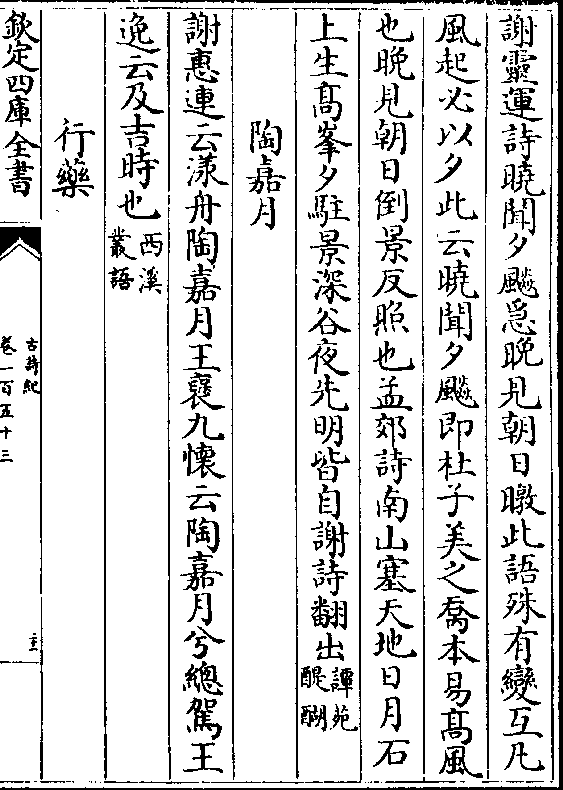 謝靈運詩曉聞夕飈急晚見朝日暾此語殊有變互凡
風起必以夕此云曉聞夕飈即杜子美之喬木易髙風
也晚見朝日倒景反照也孟郊詩南山塞天地日月石
上生髙峯夕駐景深谷夜先明皆自謝詩翻出譚苑醍醐
陶嘉月
謝惠連云漾舟陶嘉月王襃九懷云陶嘉月兮總駕王
逸云及吉時也西溪叢語
行藥
欽定四庫全書
古詩紀
卷一百五十三